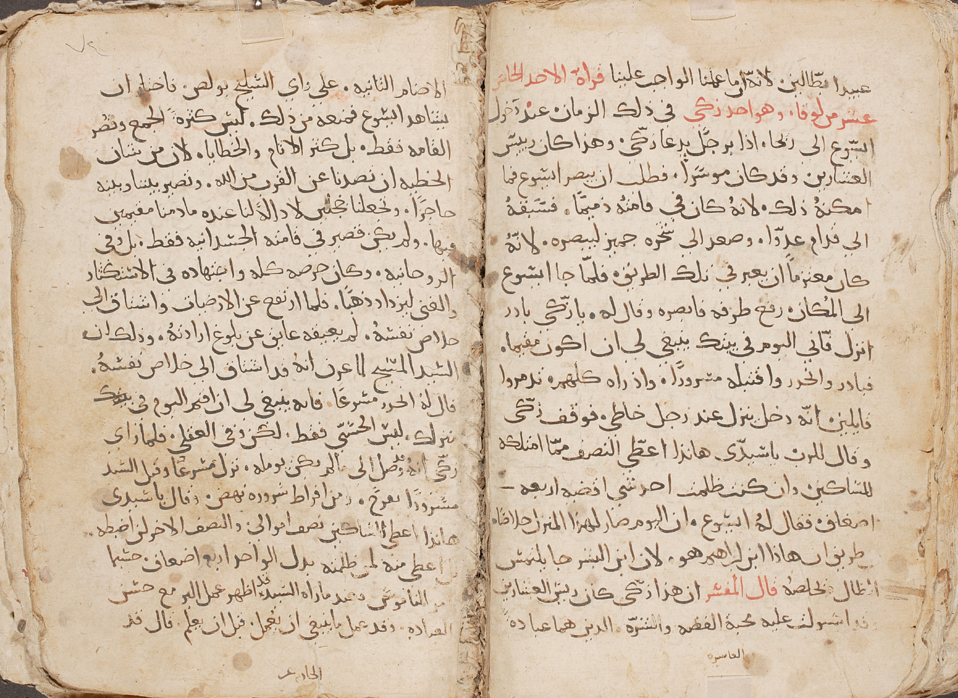 عبيدا بطالين لانه انما عملنا الواجب علينا قراة الاحد الحادي
عشر من لوقا وهو احد زكي في ذلك الزمان عند دخول
ايسوع الى ريحا. اذا برجل يدعا زكي. وهذا كان رييس
العشارين وقد كان موسرا. فطلب ان يبصر ايسوع فما
امكنه ذلك. لانه كان في قامته دميما. فسبقه
الي قدام عدوا. وصعد الى شجره جميز ليبصره. لانه
كان معتزما ان يعبر في تلك الطريق. فلما جا ايسوع
الى المكان. رفع طرفه فابصره وقال له. يا زكي بادر
انزل فاني اليوم في بيتك ينبغي لي ان اكون مقيما.
فبادر وانحدر واقتبله مسرورا. واذ راه كلهم. تذمروا
قايلين انه دخل ينزل عند رجل خاطي. فوقف زكي
وقال للرب يا سيدي هانذا اعطي النصف مما امتلكه
للمساكين وان كنت ظلمت احد شي اقضيه اربعه
اضعاف. فقال له ايسوع. ان اليوم صار لهذا المنزل خلاصا.
من طريق ان هاذا ابن ابراهيم هو. لان ابن البشر جا يلتمس
الظال يخلصه قال المفسر ان هذا زكي كان رييس العشارين
قد استولت عليه محبة الفضه والشره. الذين هما عباده
العاشره
الاصنام الثانيه. علي راي السليح بولص. فاختار ان
يشاهد ايسوع فمنعه من ذلك. ليس كثرة الجمع وقصر
القامه فقط. بل كثر الاثام والخطايا. لان من شان
الخطيه ان تصدنا عن القرب من الله. وتصير بيننا وبينه
حاجزا. وتجعلنا لا دالة لنا عنده ما دمنا مقيمين
فيها. ولم يكن قصير في قامته الجسدانيه فقط. بل وفي
الروحانيه. وكان حرصه كله واجتهاده في الاستكثار
والغنى ليزداد دهبا. فلما ارتفع عن الارضيات واشتاق الى
خلاص نفسه. لم يعيقه عايق عن بلوغ ارادته. وذلك ان
السيد المسيح لما عرف انه قد اشتاق الى خلاص نفسه.
قال له انحدر مسرعا. فانه ينبغي لي ان اقيم اليوم في بيتك
منزلك. ليس الحسي فقط. لكن وفي العقلي. فلما راى
زكي انه وصل الى ما لم يكن يومله. نزل مسرعا وقبل السيد
مسرورا بفرح. ومن افراط سروره نهض. وقال يا سيدي
هانذا اعطي المساكين نصف اموالي. والنصف الاخر اضبطه
اعطي منه لمن ظلمته بدل الواحد اربع اضعاف حسبما
الناموس فعند ما راه السيد قد اظهر عمل البر مع حسن
العباده. وقد عمل ما ينبغي ان يعمل. قبل ان يعلم. قال قد
الحاد عر